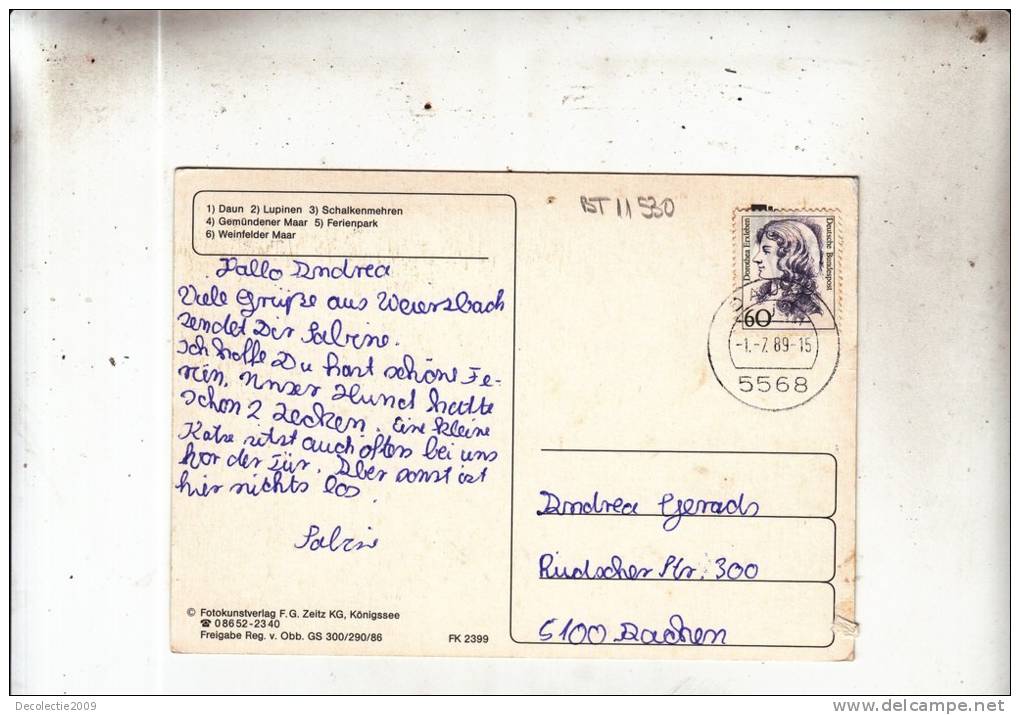 1) Daun 2) Lupinen 3) Schalkenmehren
4) Gemündener Maar 5) Ferienpark
6) Weinfelder Maar
BT 11 530
Dorothea Erxleben
Deutsche Bundespost
60
-1.-7.89-15
5568
Hallo Andrea
Viele Grüße aus Weiersbach
sendet Dir Sabine.
Ich hoffe Du hast schöne Fe-
rien. Unser Hund hatte
schon 2 Zecken. Eine kleine
Katze sitzt auch öfters bei uns
vor der Tür. Aber sonst ist
hier nichts los.
Sabine
Andrea Gerads
Rüdscher Str. 300
5100 Aachen
© Fotokunstverlag F.G. Zeitz KG, Königssee
☎ 08652-2340
Freigabe Reg. v. Obb. GS 300/290/86
FK 2399
Decolectie2009
www.delcampe.net